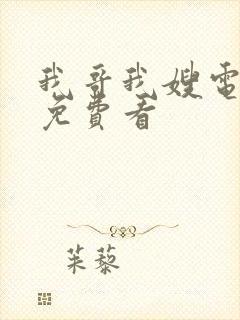 我哥我嫂电
免費看
茱藜